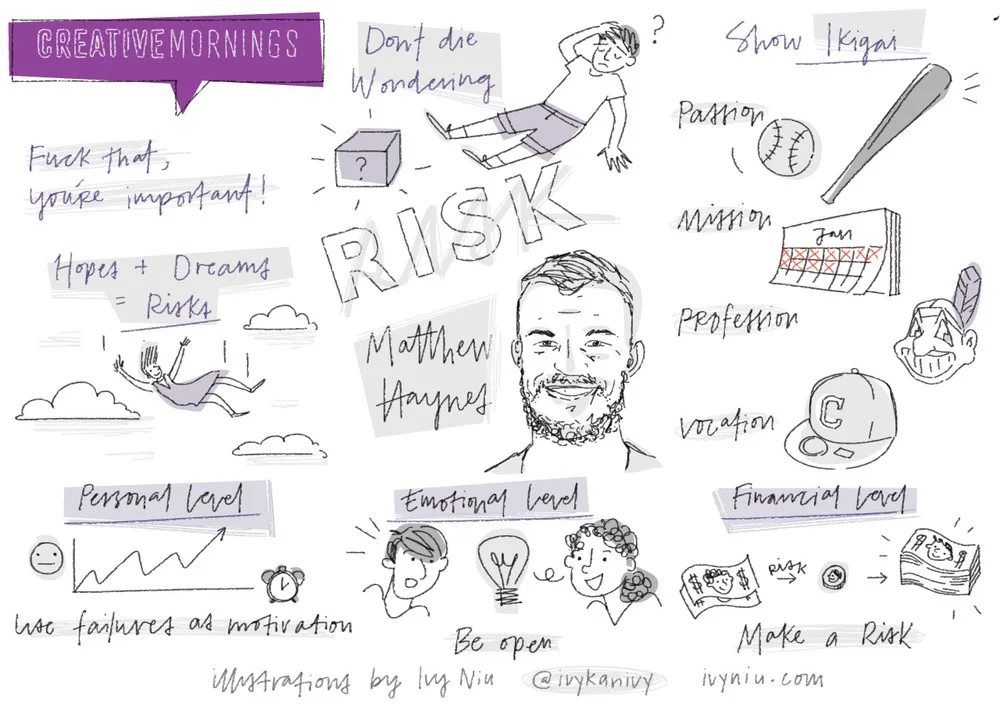 CREATIVEMORNINGS
Don't die
Wondering
?
?
Show Ikigai
Fuck that,
you're important!
Hopes + Dreams
= Risks
RISK
Matthew
Haynes
Passion
Mission
Jan
Profession
Vocation
C
Personal Level
Use failures as motivation
Emotional Level
Be open
Financial Level
$ $
RISK
Make a Risk
illustrations by Ivy Niu @ivykanivy ivyniu.com